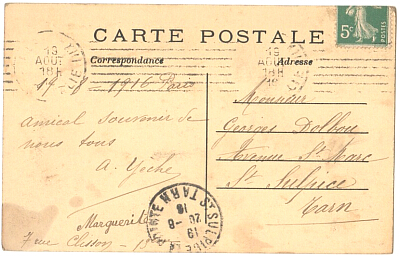 CARTE POSTALE
Correspondance
Adresse
5c
19
AOUT
18 H
19
AOUT
18 H
19 - 8 1916 Paris
Amical Souvenir de
nous tous
A. Yiche
Marguerite
7 rue Clisson
Monsieur
Georges Dolbou
Avenue St Marc
St Sulpice
Tarn
ST SULPICE LA POINTE TARN
20 - 8
16